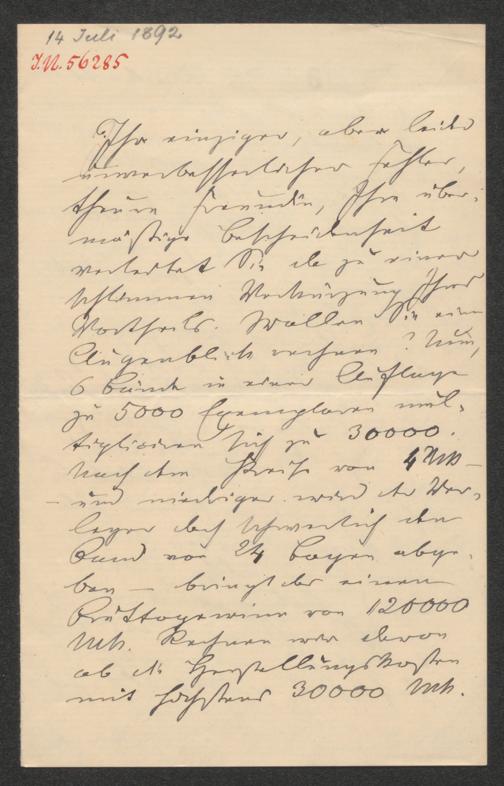 14 Juli 1892
I.N. 56285
Ihr einziger, aber leider
unverbesserlicher Fehler,
theure Freundin, Ihre über-
mäßige Bescheidenheit
verleitet Sie da zu einer
schlimmen Verkürzung Ihres
Vortheils. Wollen Sie einen
Augenblick rechnen? Nun,
6 Bände in einer Auflage
zu 5000 Exemplaren mul-
tiplicieren sich zu 30000.
Nach dem Preise von 4 Mk –
– und niedriger wird der Ver-
leger doch schwerlich den
Band von 24 Bogen abge-
ben – bringt das einen
Bruttogewinn von 120000
Mk. Rechnen wir davon
ab die Herstellungskosten
mit höchstens 30000 Mk.